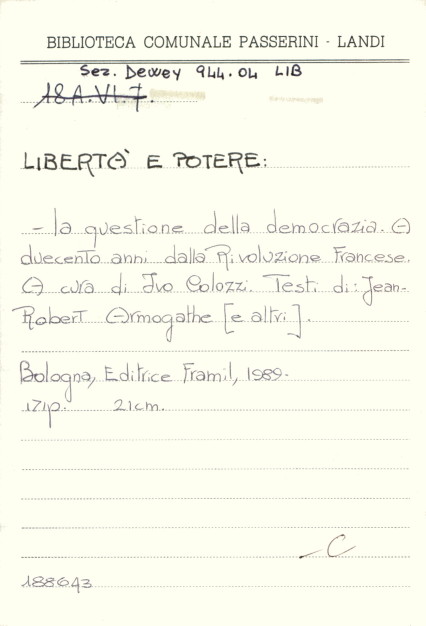 BIBLIOTECA COMUNALE PASSERINI - LANDI
Sez. Dewey 944.04 LIB
18A.VI.7.
LIBERTA' E POTERE:
- la questione della democrazia. A
duecento anni dalla Rivoluzione Francese.
A cura di Ivo Colozzi. Testi di: Jean-
Robert Armogathe [e altri].
Bologna, Editrice Framil, 1989.
171p. 21cm.
- C
188643